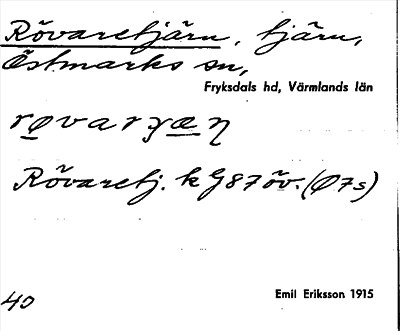 Rövaretjärn, tjärn,
Östmarks sn,
Fryksdals hd, Värmlands län
Rövaretj. k G87öv. (Ø7s)
Emil Eriksson 1915
40